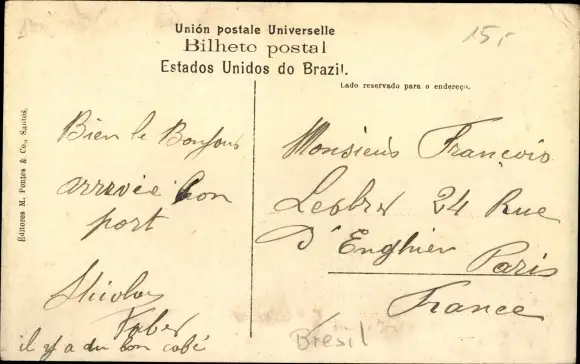 Unión postale Universelle
Bilheto postal
Estados Unidos do Brazil.
Lado reservado para o endereço.
15,
Editores M. Pontes & Co., Santos.
Bien le Bonjour
arrivée bon
port
Nicolas
Faber
il y a du bon café
Monsieus François
24 Rue
D'Enghien Paris
France
Bresil